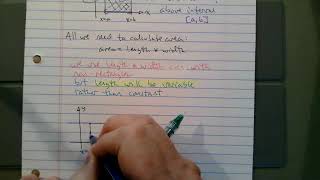 above interval
x=a x=b x [a,b]
All we need to calculate area:
area = length * width
we use length * width even with
non-rectangles
but length will be variable
rather than constant
y